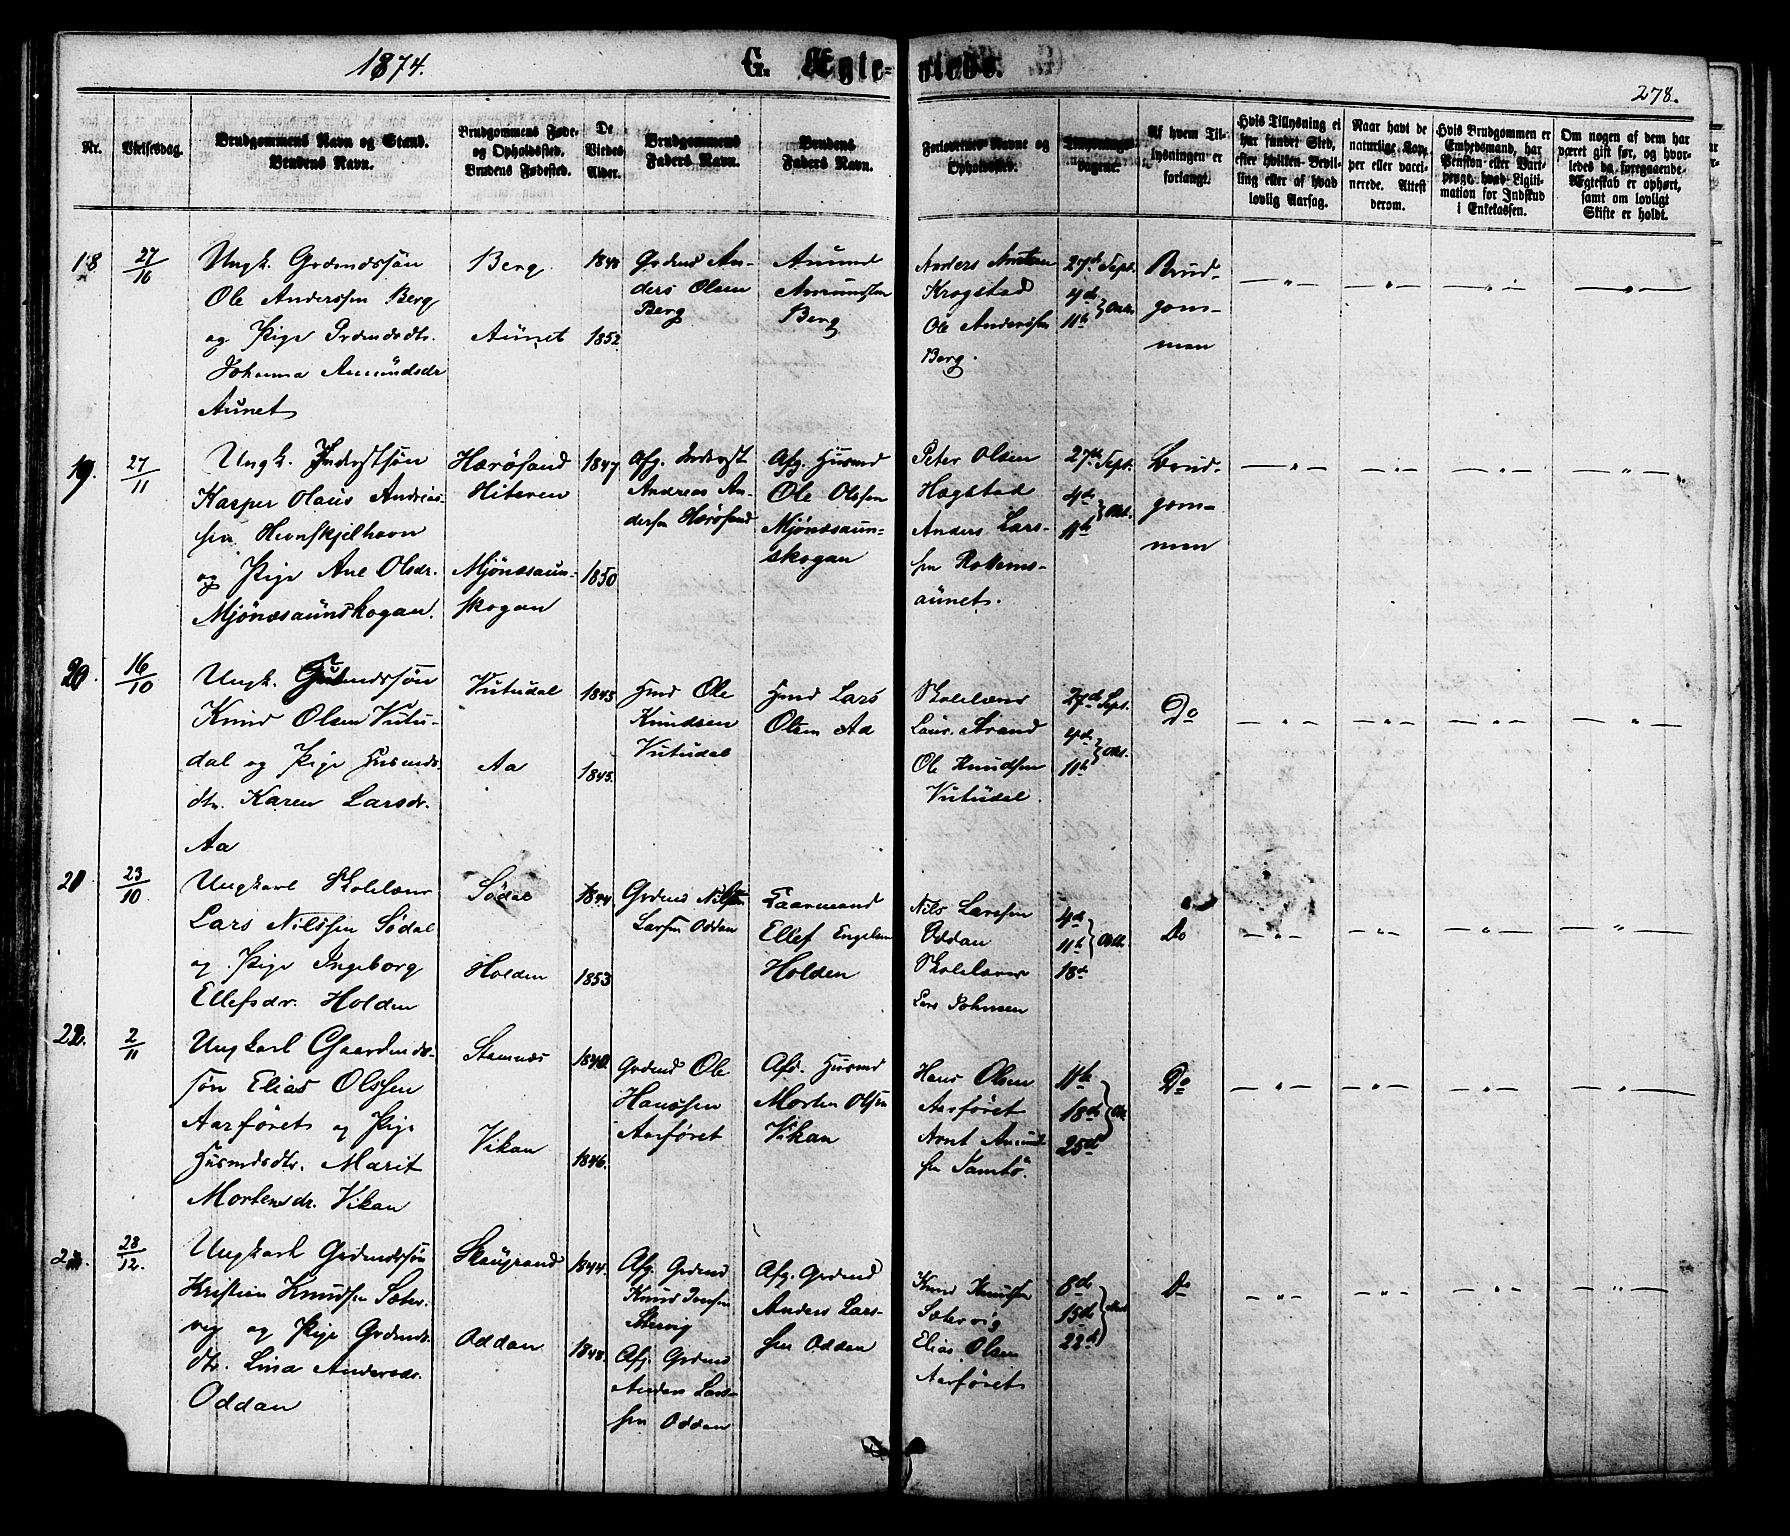 1874.
G. Ægte-
viede.
278.
Nr.
Vielsesdag.
Brudgommens Navn og Stand.
Brudens Navn.
Brudgommens Føde-
og Opholdssted.
Brudens Fødested.
De
Viedes
Alder.
Brudgommens
Faders Navn.
Brudens
Faders Navn.
Forlovernes Navne og
Opholdssted.
Tillysnings-
dagene.
Af hvem Til-
lysningen er
forlangt.
Hvis Tillysning ei
har fundet Sted,
efter hvilken Bevil-
ling eller af hvad
lovlig Aarsag.
Naar havt de
naturlige Kop-
per eller vacci-
nerede. Attest
derom.
Hvis Brudgommen er
Embedsmand, har
Pension eller Vart-
penge, hvad Ligiti-
mation for Indskud
i Enkekassen.
Om nogen af dem har
været gift før, og hvor-
ledes da foregaaende
Ægteskab er ophørt,
samt om lovligt
Skifte er holdt.
18
27/10
Ungk. Grdmdssøn
Ole Anderssen Berg
og Pige Grdmdsdtr.
Johanna Amundsdr
Aunet
Berg
Aunet
1852
Grdmd An-
ders Olsen
Berg
Amund
Amundsen
Berg
Anders
Krogstad
Ole Anderssen
Berg.
27de Sept.
4de
11te
Brud-
gom-
men
19.
27/11
Ungk. Inderstsøn
Kasper Olaus Andreas-
sen Hevnskjelhavn
og Pige Ane Olsdr.
Mjönæsaunskogan.
Hærösand
Hiteren
Mjönæsaun-
skogan
1847
1850
Afg. Inderst
Andreas An-
dersen Hærösand
Afg. Husmd
Ole Olsen
Mjönæsaun-
skogan
Peter Olsen
Hægstad
Anders Lars-
sen Rottems-
aunet.
27de Sept.
4de
11te
Okt.
Brud-
gom-
men
20.
16/10
Ungk. Husmdssøn
Knud Olsen Vutu-
dal og Pige Husmds-
dtr. Karen Larsdr.
Aa
Vutudal
Aa
1843
1845.
Hmd Ole
Knudsen
Vutudal
Hmd Lars
Olsen Aa
Skolelærer
Laur. Strand
Ole Knudsen
Vutudal.
27de Sept.
4de
11te
Okt.
Do
21
23/10
Ungkarl Skolelærer
Lars Nilssen Södal
og Pige Ingeborg
Ellefsdr. Holden
Södal
Holden
1844
1853
Grdmd Nils
Larsen Oddan
Gaarmand
Ellef Engelsen
Holden
Nils Larssen
Oddan
Skolelærer
Lars Johnsen
4de
11te
18de
Okt.
Do
22.
2/11
Ungkarl Gaardmds-
søn Elias Olssen
Aarföret og Pige
Husmdsdtr. Marit
Mortensdr. Vikan
Stamnæs
Vikan
1840.
1846.
Grdmd Ole
Hanssen
Aarföret
Afd. Husmd
Morten Olsen
Vikan
Hans Olsen
Aarföret
Arnt Amund-
sen Tamtö.
11te
18de
25de
Okt.
Do
28/12.
Ungkarl Grdmdssøn
Kristian Knudsen Sæter-
vig og Pige Grdmds-
dtr. Lina Andersdr.
Oddan
Skaugrand
Oddan
1844.
1848.
Afg. Grdmd
Knud Jensen
Sætervig
Afg. Grdmd
Anders Lars-
sen Oddan
Afg. Grdmd
Anders Lars-
sen Oddan
Knud Knudsen
Sætervig
Elias Olsen
Aarföret
8de
15de
22de
Do